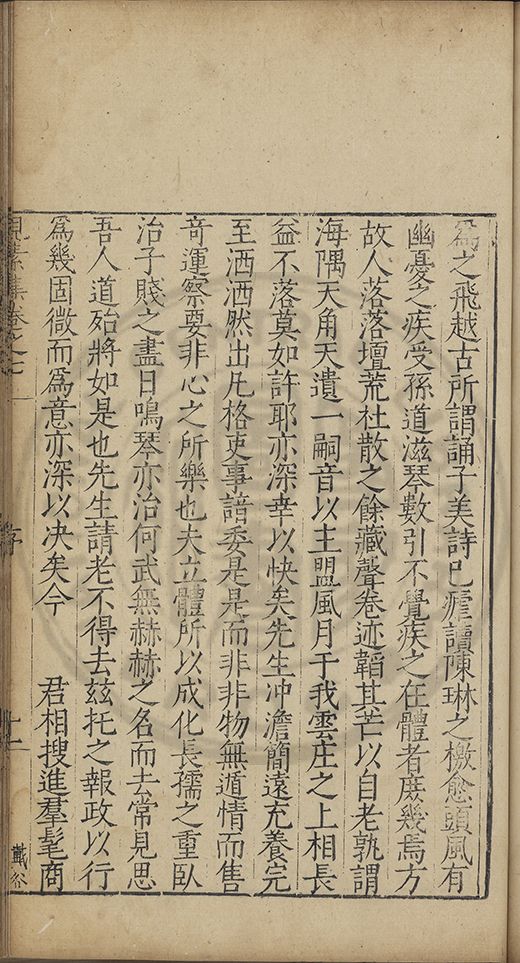 為之飛越古所謂誦子美詩已瘧讀陳琳之檄愈頭風有
幽憂之疾受孫道滋琴數引不覺疾之在體者庶幾焉方
故人落落壇荒杜散之餘藏聲卷迹韜其芒以自老孰謂
海隅天角天遺一嗣音以主盟風月于我雲庄之上相長
益不落莫如許耶亦深幸以快矣先生冲澹簡遠充養完
至洒洒然出凡格吏事諳委是是而非非物無遁情而售
竒運察要非心之所樂也夫立體所以成化長孺之重臥
治子賤之盡日鳴琴亦治何武無赫赫之名而去常見思
吾人道殆將如是也先生請老不得去玆托之報政以行
為幾固微而為意亦深以决矣今　君相搜進羣髦商
集卷之七 序 十一